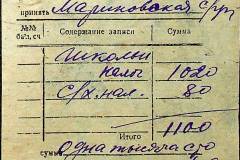 принять Мариновская с/рг
№№ бал. сч. Содержание записи Сумма
Школьн
налог 1020
С/х. нал. 80
Итого 1100
сумма Одна тысяча сто